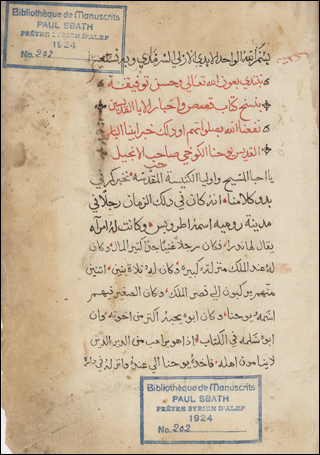 Bibliothèque de Manuscrits
PAUL SBATH
PRÊTRE SYRIEN D'ALEP
1924
No. 202
بسم الله الواحد الابدي الازلي السرمدي وبه نستعين
نبتدي بعون الله تعالى وحسن توفيقه
بنسخ كتاب قصص واخبار الابا القديسين
نفعنا الله بصلواتهم اولا ذلك خبر ابينا البار
القديس يوحنا الكوخي صاحب الانجيل
يا احبا المسيح واوليا الكنيسة المقدسة نخبركم في
بدو كلامنا انه كان في ذلك الزمان رجلا في
مدينة روميه اسمه اطروبس وكانت له امراه
يقال لها ندرا فكان رجلا غنيا جدا كثير المال وكان
له عند الملك منزلة كبيرة وكان له ثلاثة بنين اثنين
منهم يركبون إلى قصر الملك وكان الصغير فيهم
اسمه يوحنا وكان ابوه يحبه اكثر من اخوته وان
ابوه سلمه في الكتاب اذا هو براهب من الدير الذين
لا ينامون اهله فاخذه يوحنا الى عنده وانزله في داره
Bibliothèque de Manuscrits
PAUL SBATH
PRÊTRE SYRIEN D'ALEP
1924
No. 202